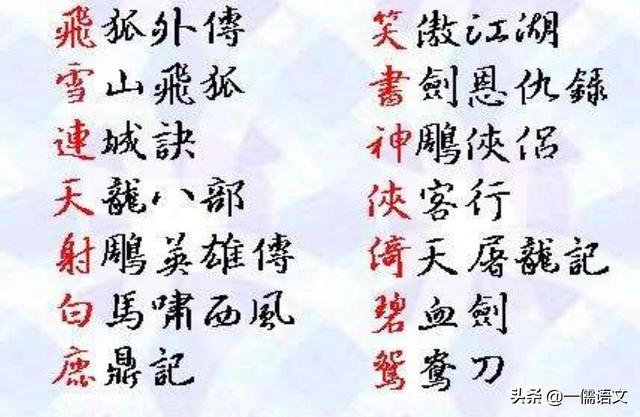 飛狐外傳
雪山飛狐
連城訣
天龍八部
射鵰英雄傳
白馬嘯西風
鹿鼎記
笑傲江湖
書劍恩仇錄
神鵰俠侶
俠客行
倚天屠龍記
碧血劍
鴛鴦刀
头条 @一儒语文